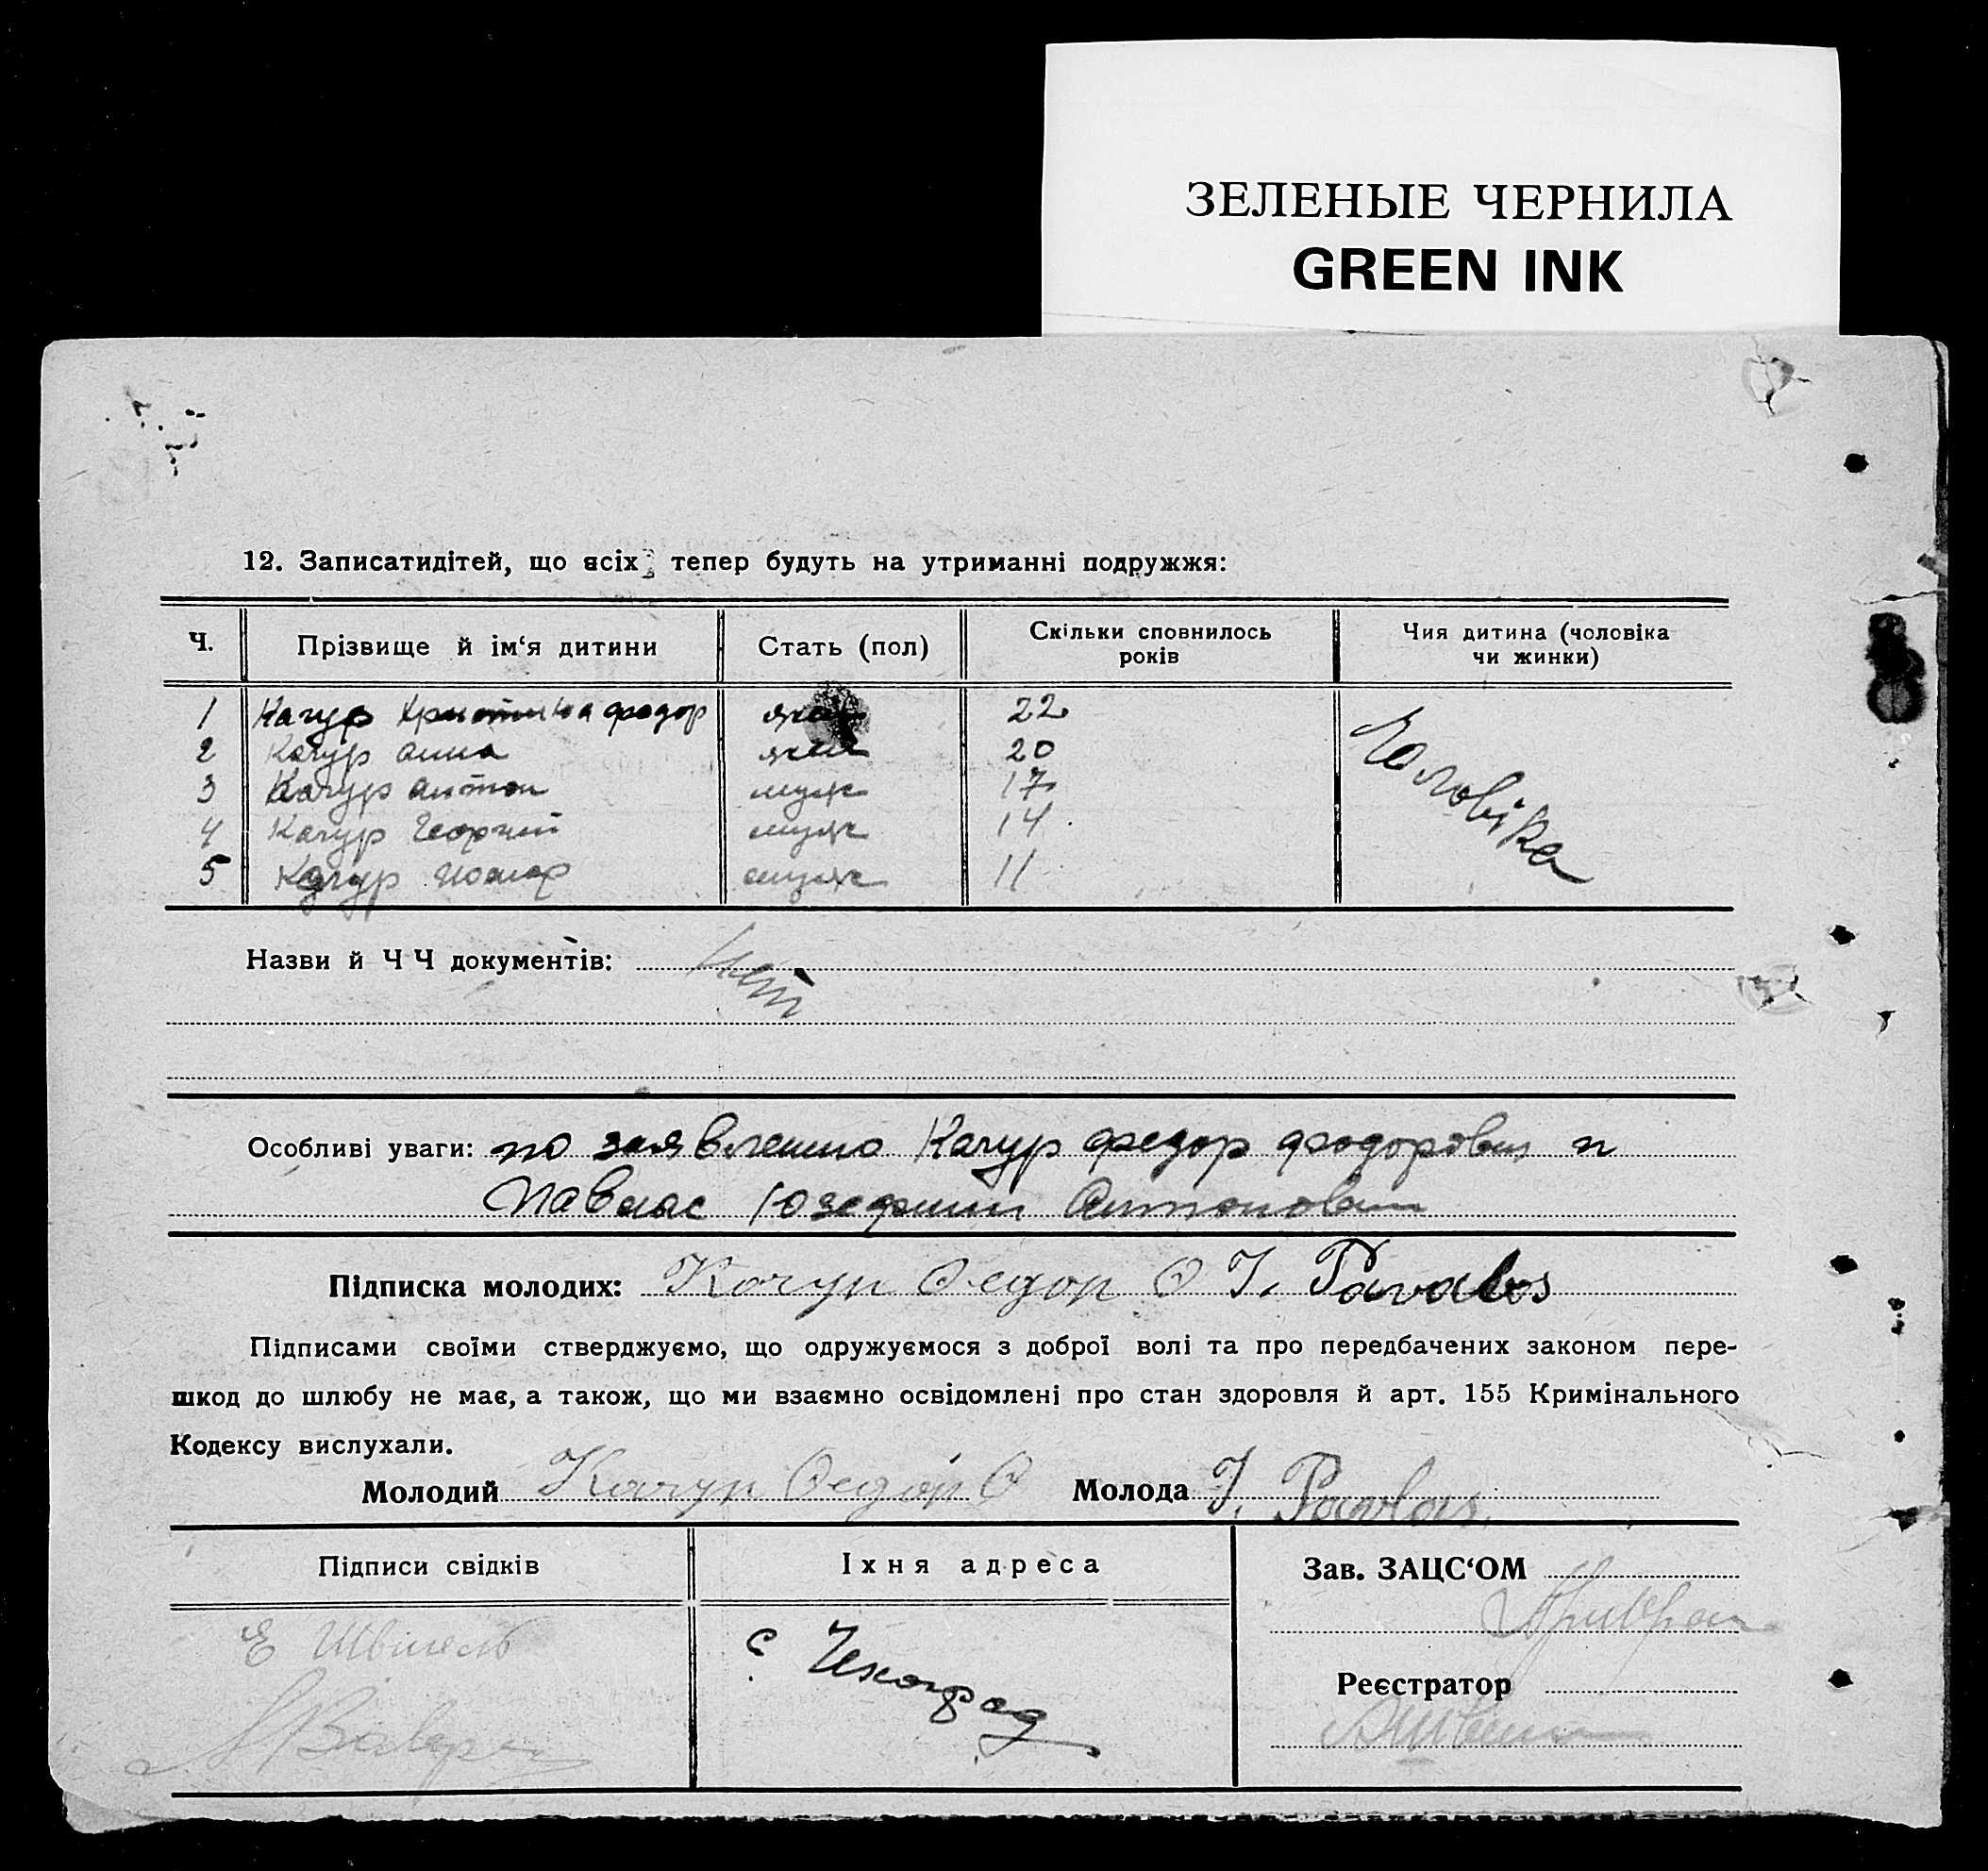 ЗЕЛЕНЫЕ ЧЕРНИЛА
GREEN INK
12. Записатидітей, що всіх тепер будуть на утриманні подружжя:
Ч. Прізвище й ім‘я дитини Стать (пол) Скільки сповнилось років Чия дитина (чоловіка чи жинки)
1 Качур Христина федор жен 22 Чоловіка
2 Качур анна жен 20
3 Качур антон муж 17
4 Качур Георгий муж 14
5 Качур муж 11
Назви й ЧЧ документів: нет
Особливі уваги: по заявлению Качур федор фодорович и
Павлас Юзефини Антоновни
Підписка молодих: Качур Федор Ф J. Pavalos
Підписами своїми стверджуємо, що одружуємося з доброї волі та про передбачених законом пере-
шкод до шлюбу не має, а також, що ми взаємно освідомлені про стан здоровля й арт. 155 Кримінального
Кодексу вислухали.
Молодий Качур Федор Ф Молода J. Pavlas
Підписи свідків Їхня адреса Зав. ЗАЦС‘ОМ
Е
с Чехоград
Реєстратор